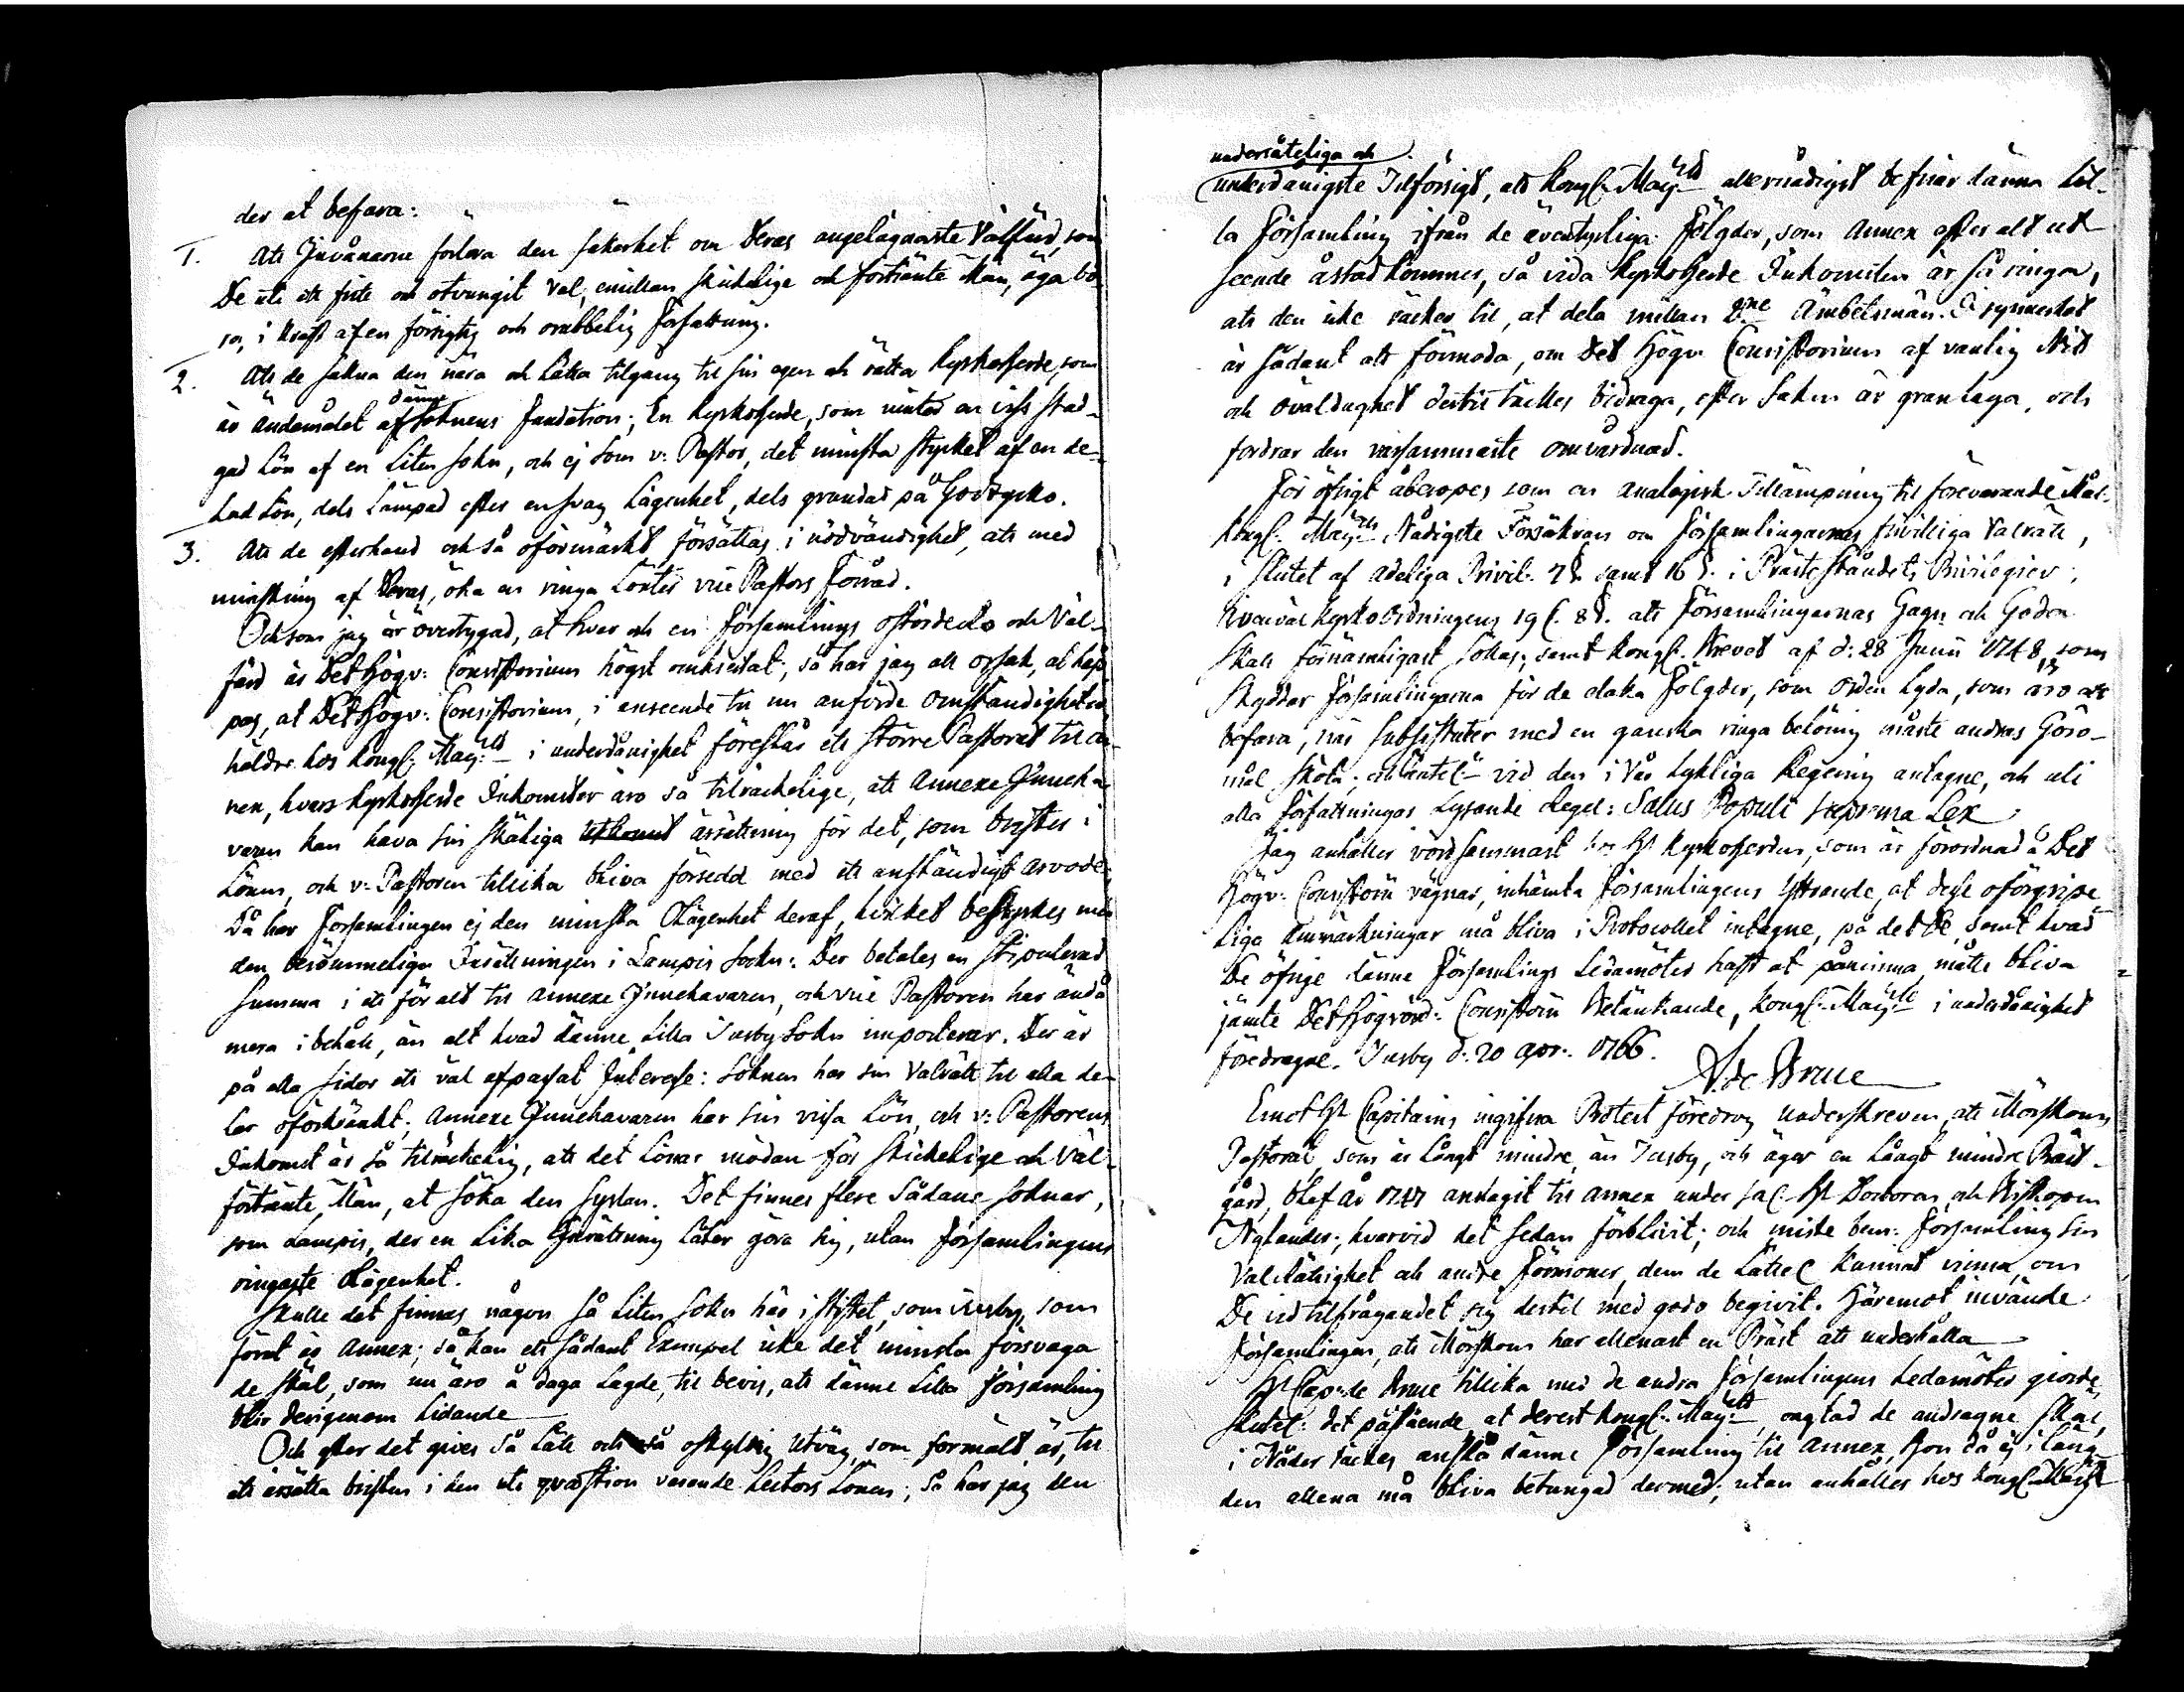 der at befara:
1. Att Invånarne förlora den säkerhet om Deras angelägnaste Välfärd, som
De uti ett fritt och otvungit Val, emillan skickelige och förtiänte Män, äga bö-
ra, i kraft af en försigtig och orubbelig författning.
2. Att de sakna den nära och lätta tilgång til sin egen och rätta Kyrkoherde, som
är ändamålet af dänne Soknens fundation; En Kyrkoherde, som nüter en viss stad-
gad Lön af en Liten Sokn, och ej som v: Pastor, det minsta stycket af en de-
lad Lön, dels Lämpad efter en svag Lägenhet, dels grundad på Godtycko.
3. Att de efterhand och så oförmärkt försättas i nödvändighet, att med
minskning af Deras, öka en ringa Löntés vice Pastors Förråd.
Och som jag är övertygad, at hvar och en Församlings ostörde Ro och Väl-
färd är Det Högv: Consistorium högst omhiertat; så har jag all orsak, at hop-
pas, at Det Högv: Consistorium, i anseende til nu anförde Omständigheter
häldre hos Kongl: May:tt i underdånighet föreslår ett större Pastorat til An-
nex, hvars Kyrkoherde Inkomster äro så tilräckelige, att Annexe Inneha-
varen kan hava sin skäliga ärsättning för det, som brister i
Lönen, och v: Pastoren tillika bliva försedd med ett anständigt arvode;
Då har Församlingen ej den minsta Olägenhet deraf, hvilket bestyrkes med
den berömmeliga Inrättningen i Lampis Sockn: Der betales en stipulerad
Summa i ett för alt til Annexe Innehavaren, och vice Pastoren har ändå
mera i behåll, än alt hvad dänne lilla Jusby Sokn importerar. Der är
på alla sidor ett väl afpassat Interesse: Soknen har sin Valrätt til alla de-
lar oförkränkt; Annexe Innehavaren har sin vissa Lön, och v: Pastorens
Inkomst är så tilräckelig, att det lönar mödan för skickelige och väl-
förtiänte Män, at söka den syslan. Det finnes flere sådane soknar,
som Lampis, der en lika Inrättning låter göra sig, utan Församlingens
ringaste Olägenhet.
Skulle det finnas någon så liten Sokn här i Stiftet, som Jusby, som
förut är Annex; så kan ett sådant Exempel icke det minsta försvaga
de skäl, som nu äro å daga lagde, til bevis, att dänne Lilla Församling
blir derigenom lidande
Och efter det gives så lätt och så oskyldig utväg, som förmält är, til
att ärsätta bristen i den uti quæstion varande Lectors Lönen; så har jag den
undersåteliga och
underdånigste Tilförsigt, att Kongl: May:tt allernådigst befriar dänna Lil-
la Församling ifrån de äventyrliga Fölgder, som Annex efter alt ut-
seende åstadkommer, så vida Kyrkoherde Inkomsten är så ringa,
att den icke räcker til, at dela mellan 2:ne Ämbetsmän. I synnerhet
är sådant att förmoda, om Det Högv: Consistorium af vanlig Nit
och Oväldughet dertil täckes bidraga, efter saken är granlaga, och
fordrar den varsammaste omvårdnad.
För öfrigt åberopes som en analogisk Tillämpning til förevarande Mål,
Kongl: May:tts Nådigste Försäkran om Församlingarnas friviliga Valrätt,
i slutet af Adeliga Privil: 7 §. samt 16 §. i Präste Ståndets Privilegier;
hvarval Kyrko Ordningens 19 C. 8 §. att Församlingarnas Gagn och Goda
skall förnämligast sökas; samt Kongl: Brevet af d: 28 Junii 1748, som
skyddar Församlingarna för de elaka Fölgder, som Orden lyda, som äro att
befara, när Substituter med en ganska ringa belöning måste andras Göro-
mål sköta; vid den i Vår Lykliga Regering antagne, och uti
alla författningar Lysande Regel: Salus Populi suprema Lex
Jag anhåller vördsammast hos Hr Kyrkoherden, som är förordnad å Det
Högv: Consistorii vägnar, inhämta Församlingens yttrande, at desse oförgripe-
liga Anmärkningar må bliva i Protocollet intagne, på det De, samt hvad
De öfrige dänne Församlings Ledamöter haft at påminna, måtte bliva
jämte Det Högvörd: Consistorii Betänkande, Kongl: May:tt i underdånighet
föredragne. Jusby d: 20 apr: 1766.
A: de Bruce
Emot Hr Capitains ingifna Protest föredrog underskreven, att Mörskoms
Pastorat, som är långt mindre, än Jusby, och äger en långt mindre Präst-
gård, blef år 1747 antagit til Annex under sal Hr Doctoren och Biskopen
Nylander; hvarvid det sedan förblivit; och miste bem: Församling sin
Valrättighet och andre förmoner, dem de lättel kunnat vinna, om
De vid tilfrågandet sig dertil med godo begivit. Häremot invände
Församlingen, att Mörskom har allenast en Präst att underhålla
Hr Cap: de Bruce tillika med de andra Församlingens Ledamöter giorde
slutel: det påstående, at derest Kongl: May:tt, oagtad de andragne skäl,
i Nåder täckes anslå dänne Församling til Annex, hon då ej i läng-
den allena må bliva betungad dermed; utan anhålles hos Kongl: May:tt